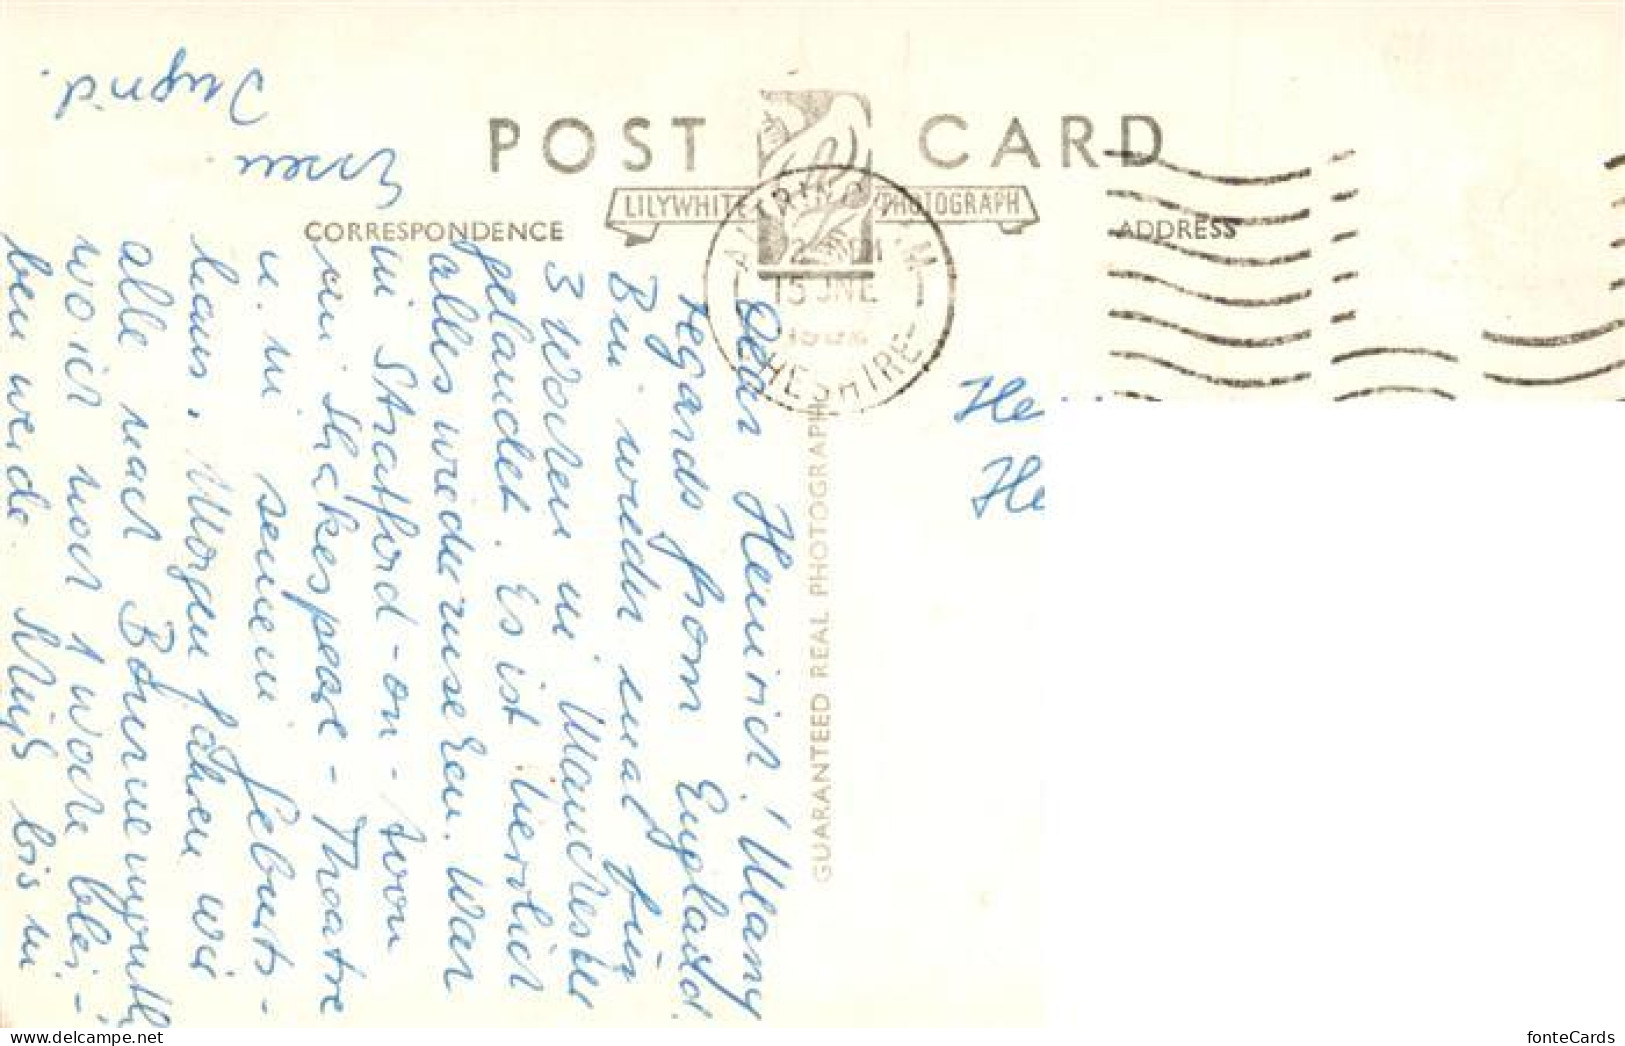 POST CARD
LILYWHITE PHOTOGRAPH
CORRESPONDENCE
ADDRESS
ALTRINCHAM
15 JNE
CHESHIRE
GUARANTEED REAL PHOTOGRAPH
Dear Heinrich! Many
regards from England.
Bin wieder mal für
3 Wochen in Manchester
gelandet. Es ist herrlich
alles wiederzusehen. War
in Stratford-on-
im Shakespeare-Theatre
u. in seinem Geburts-
haus. Morgen fahren wir
alle nach Bournemouth
wo ich noch 1 Woche blei-
ben werde. bis in
Essen
Ingrid.
He
He
fonteCards